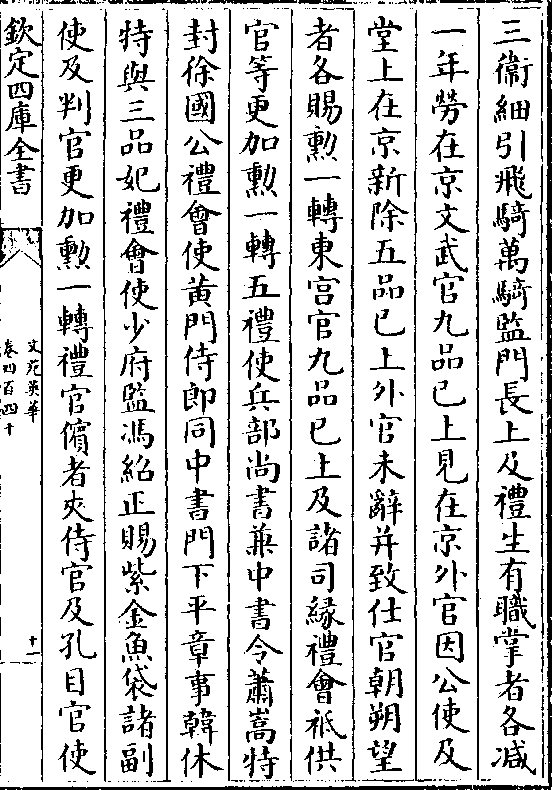 三衞細引飛騎萬騎監門長上及禮生有職掌者各減
一年勞在京文武官九品已上見在京外官因公使及
堂上在京新除五品已上外官未辭并致仕官朝朔望
者各賜勲一轉東宫官九品已上及諸司緣禮會祗供
官等更加勲一轉五禮使兵部尚書兼中書令蕭嵩特
封徐國公禮會使黄門侍郎同中書門下平章事韓休
特與三品妃禮會使少府監馮紹正賜紫金魚袋諸副
使及判官更加勲一轉禮官儐者夾侍官及孔目官使
欽定四庫全書
文苑英華
卷四百四十
十一